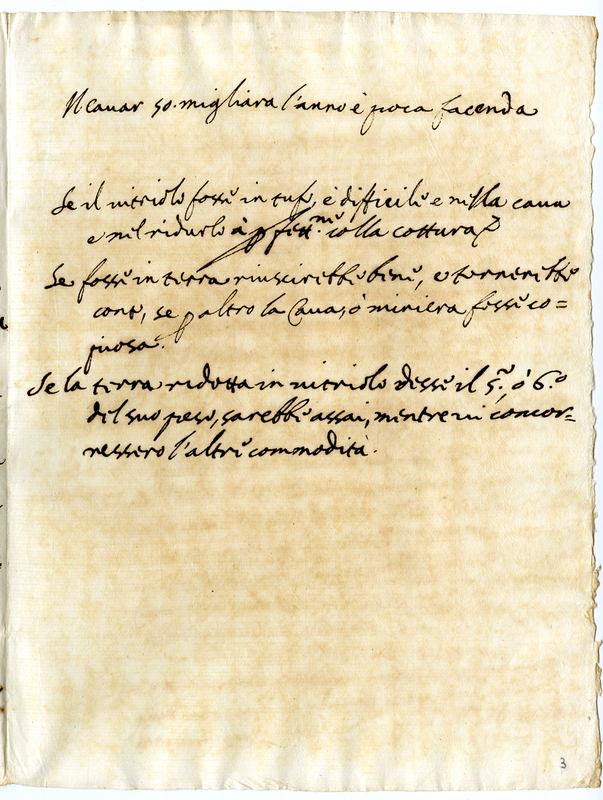 Il cauar 50. migliara l'anno è poca facenda
Se il uitriolo fosse in tufo, è difficile e nella caua
e nel ridurlo à p̱fett.ne colla cottura
Se fosse in terra riuscirebbe bene, e tornerebbe
conto, se p̱ altro la Caua, ò miniera fosse co=
piosa.
Se la terra ridotta in uitriolo desse il 5.º, ò 6.º
del suo peso, sarebbe assai, mentre ui concor=
ressero l'altre commodità.
3